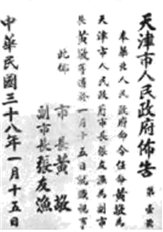 天津市人民政府佈告 第壹號
奉華北人民政府令任命黃敬為
天津市人民政府市長張友漁為副市
長黃敬等遵於一月十五日就職視事
此佈
市長黃敬
副市長張友漁
中華民國三十八年一月十五日